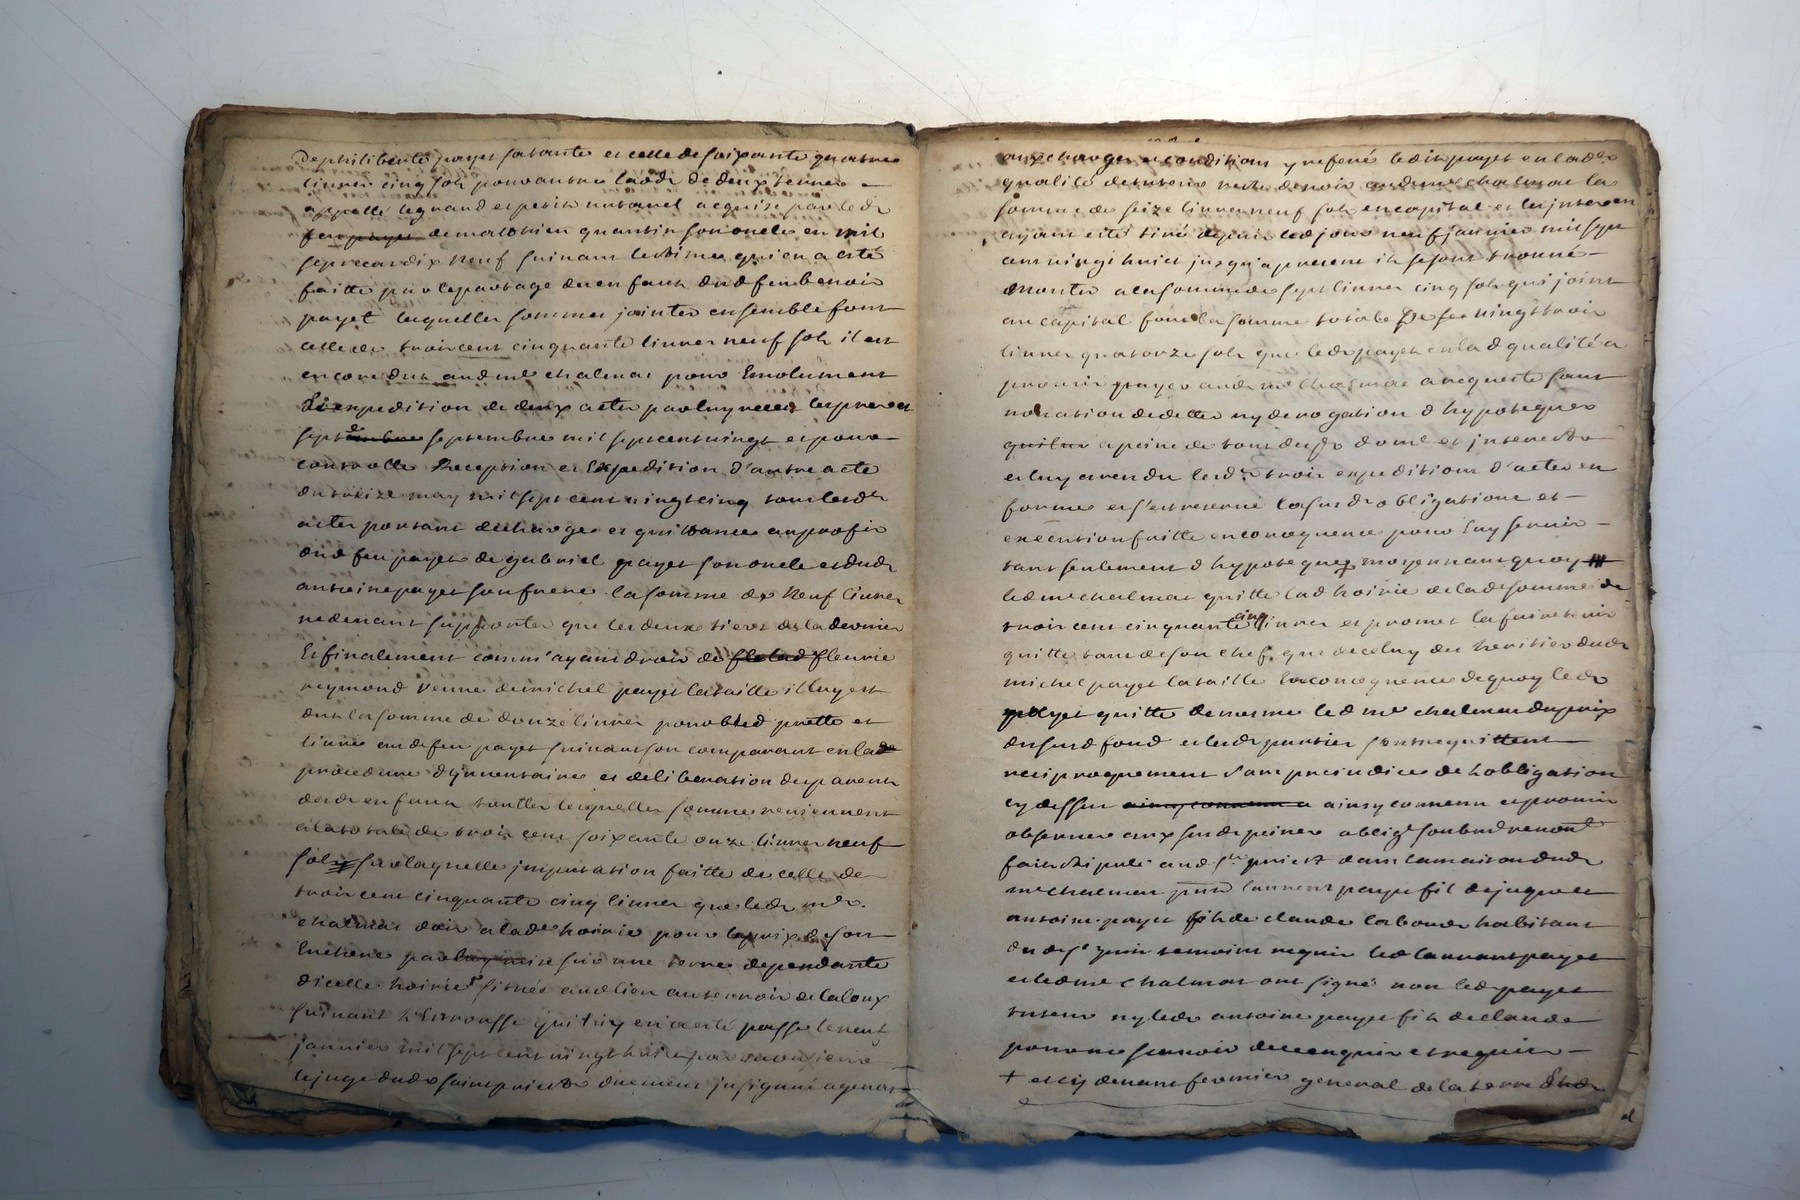 dephiliberte payet sa tante et celle de soixante quatre
livres cinq sols pour autre laods de deux terres
appellé le grand et petit naravel acquise par led.
feu payet de mathieu quantin son oncle en mil
sept cent dix neuf suivant le bime qui en a esté
faitte par le partage des enfants dud feu benoit
payet lesquelles sommes jointes ensemble font
celle de trois cent cinquante livres neuf sols il est
encore dut aud me chalmas pour Emolument
Expedition de deux actes par luy receu les premier
sept septembre mil sept cent vingt et pour
controlle Reception et Expedition d'autre acte
du treize may mil sept cent vingt cinq tous lesd.
actes portant decharge et quittance au profit
dud feu payet de gabriel payet son oncle et dud.
antoine payet son frere la somme de neuf livres
ne devant supporter que les deux tiers de la dernier
Et finalement comm'ayant droit de fleurie
reymond veuve de michel payet lataille il luy est
dut la somme de douze livres pour bled prette et
livré aud feu payet suivant son comparant en lad
procedure d'jnventaire et deliberation des parents
desd. enfants toutes lesquelles sommes reviennent
a la totale de trois cent soixante onze livres neuf
sols sur laquelle imputation faitte de celle de
trois cent cinquante cinq livres que led. me.
chalmas doit a lad. hoirie pour le prix de son
Enchere par mise sur une terre dependante
dicelle hoirie situé aud lieu au terroir de laloux
suivant l'Estrousse qui luy en a esté passe le neuf
janvier mil sept cent vingt huit par monsieur
le juge dud. saint priest duement insigné agenas
aux charges et conditions y referé led. payet en lad.
qualité de tuteur reste devoir aud me chalmas la
somme de seize livres neuf sols en capital et les interets en
ayant esté tiré depuis led jour neuf janvier mil sept
cent vingt huict jusqu'a present ils se sont trouvé
monter a la somme de sept livres cinq sols qui joint
au capital font la somme totale De vingt trois
livres quatorze sols que led. payet en lad qualité a
promis payer aud. me chalmas a requeste sans
novation de dette ny derogation d'hypoteques
a peine de tous depens dom. et jnterets
et luy a rendu lesd. trois expeditions d'actes en
forme et s'est reservé lasusd. obligations et
execution faitte en consequence pour luy servir
tant seulement d'hypoteque moyennant quoy
led me chalmas quitte lad hoirie de lad somme de
trois cent cinquante cinq livres et promet la faire tenir
quitte tant de son chef que de celuy des heritiers dud.
michel payet lataille En consequence de quoy led.
payet quitte de mesme led me chalmas du prix
du susd fond et lesd. parties sentrequittent
reciproquement sans prejudice de lobligation
cy dessus ainsy convenu et promis
observer aux susd. peines obligé soubmd renonce
fait et passé aud st priest dans la maison dud.
me chalmas pnts laurent payet fils de jaques et
antoine payet fils de claude laboureur habitant
dud st priest temoins requis led laurent payet
et led me chalmas ont signé non led payet
tuteur ny led. antoine payet fils de claude
pour ne scavoir de ce enquis et requis
+ et cy devant fermier general de la terre dud.